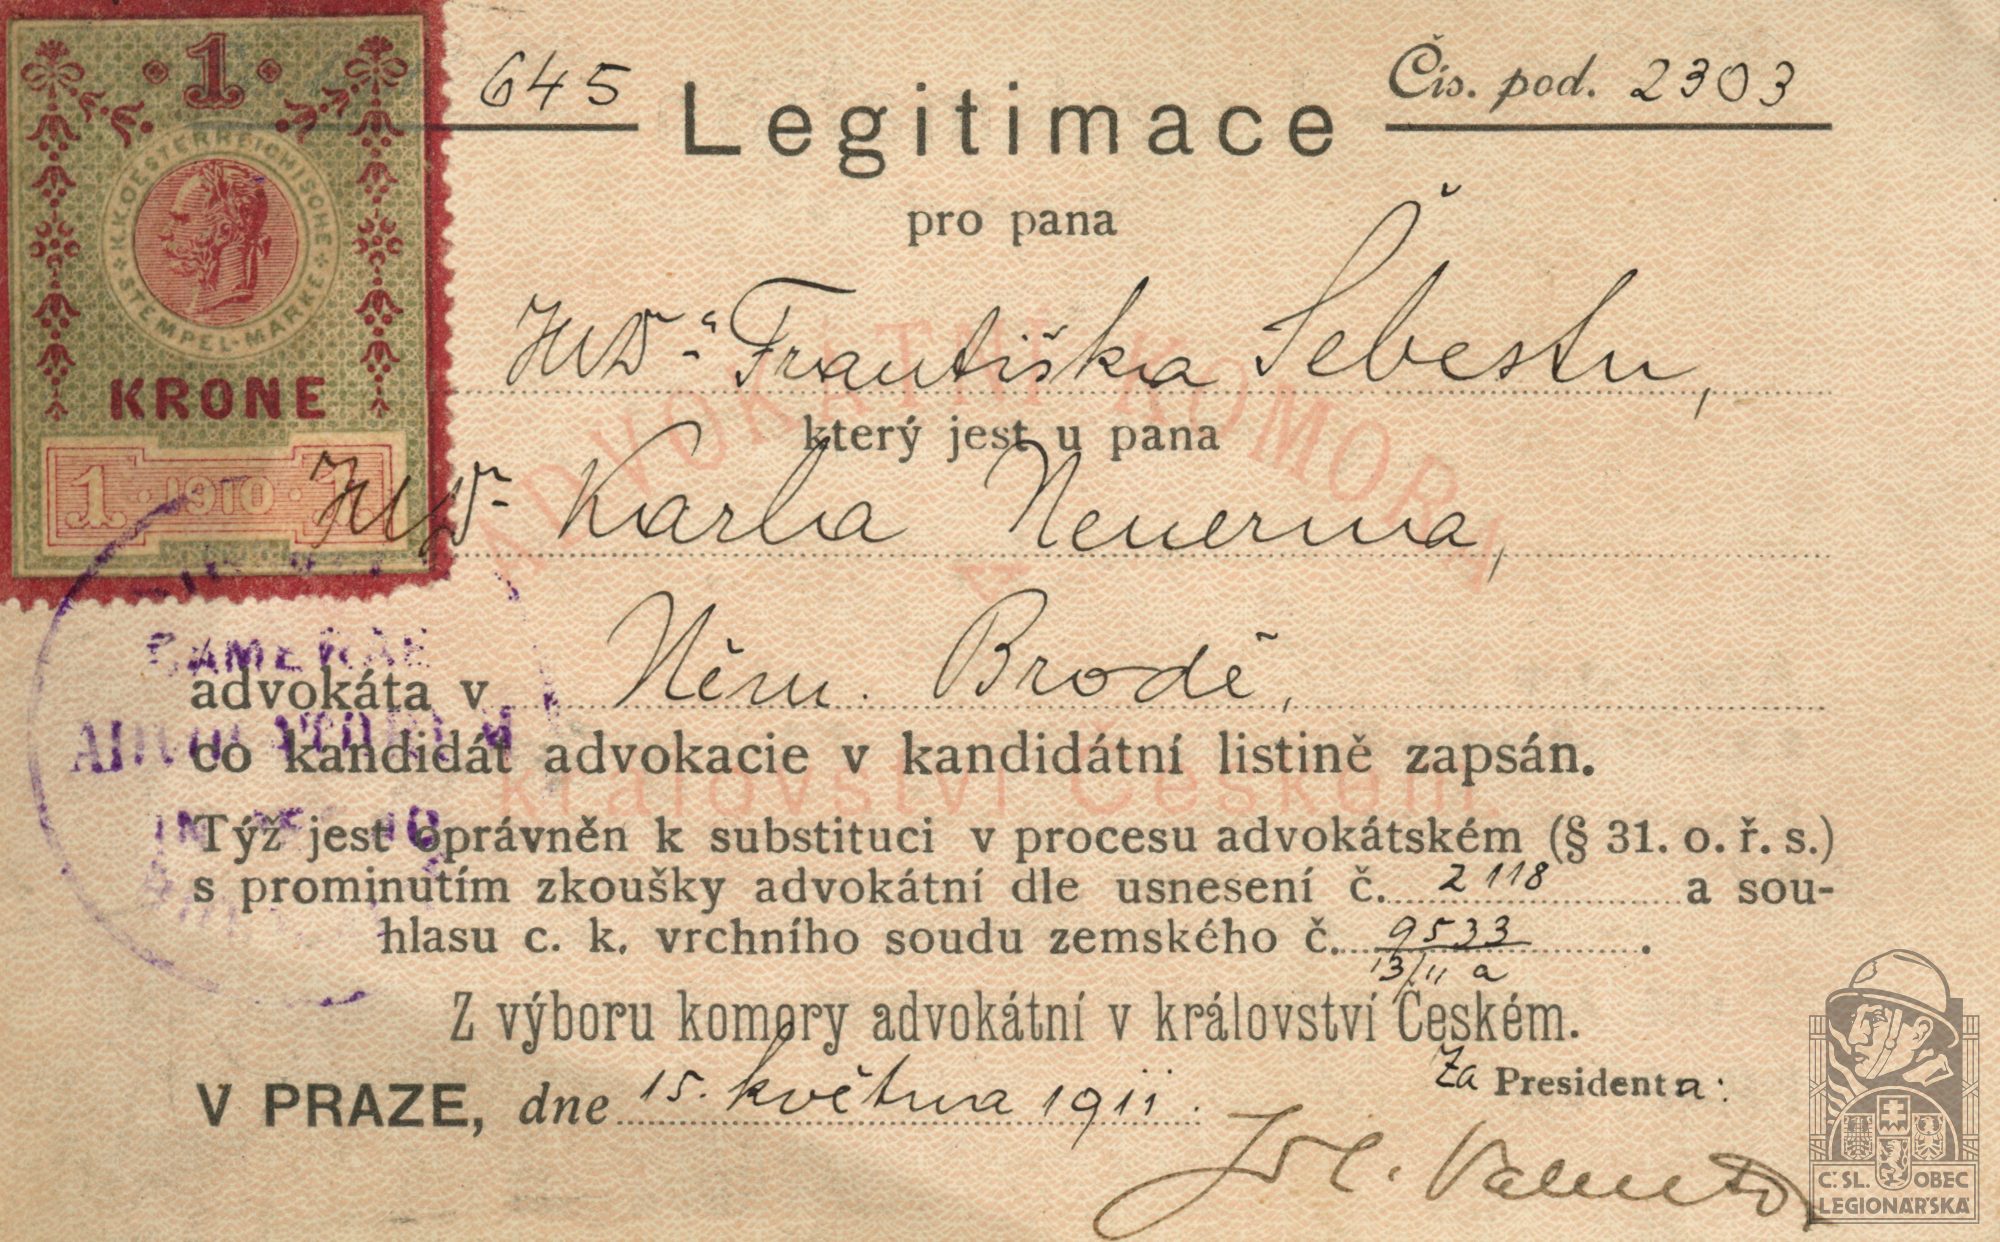 645
Čís. pod. 2303
Legitimace
pro pana
JUDra Františka Šebestu,
který jest u pana
JUDr Karla Neuerma,
advokáta v Něm. Brodě,
co kandidát advokacie v kandidátní listině zapsán.
Týž jest oprávněn k substituci v procesu advokátském (§ 31. o. ř. s.)
s prominutím zkoušky advokátní dle usnesení č. 2118 a sou-
hlasu c. k. vrchního soudu zemského č. 9533
13/11 a
Z výboru komory advokátní v království Českém.
V PRAZE, dne 15. května 1911.
Za Presidenta:
1
K.K. OESTERREICHISCHE
STEMPEL-MARKE
KRONE
1 · 1910 · 1
ADVOKÁTNÍ KOMORA
v
království Českém.
Č. SL. OBEC
LEGIONÁŘSKÁ